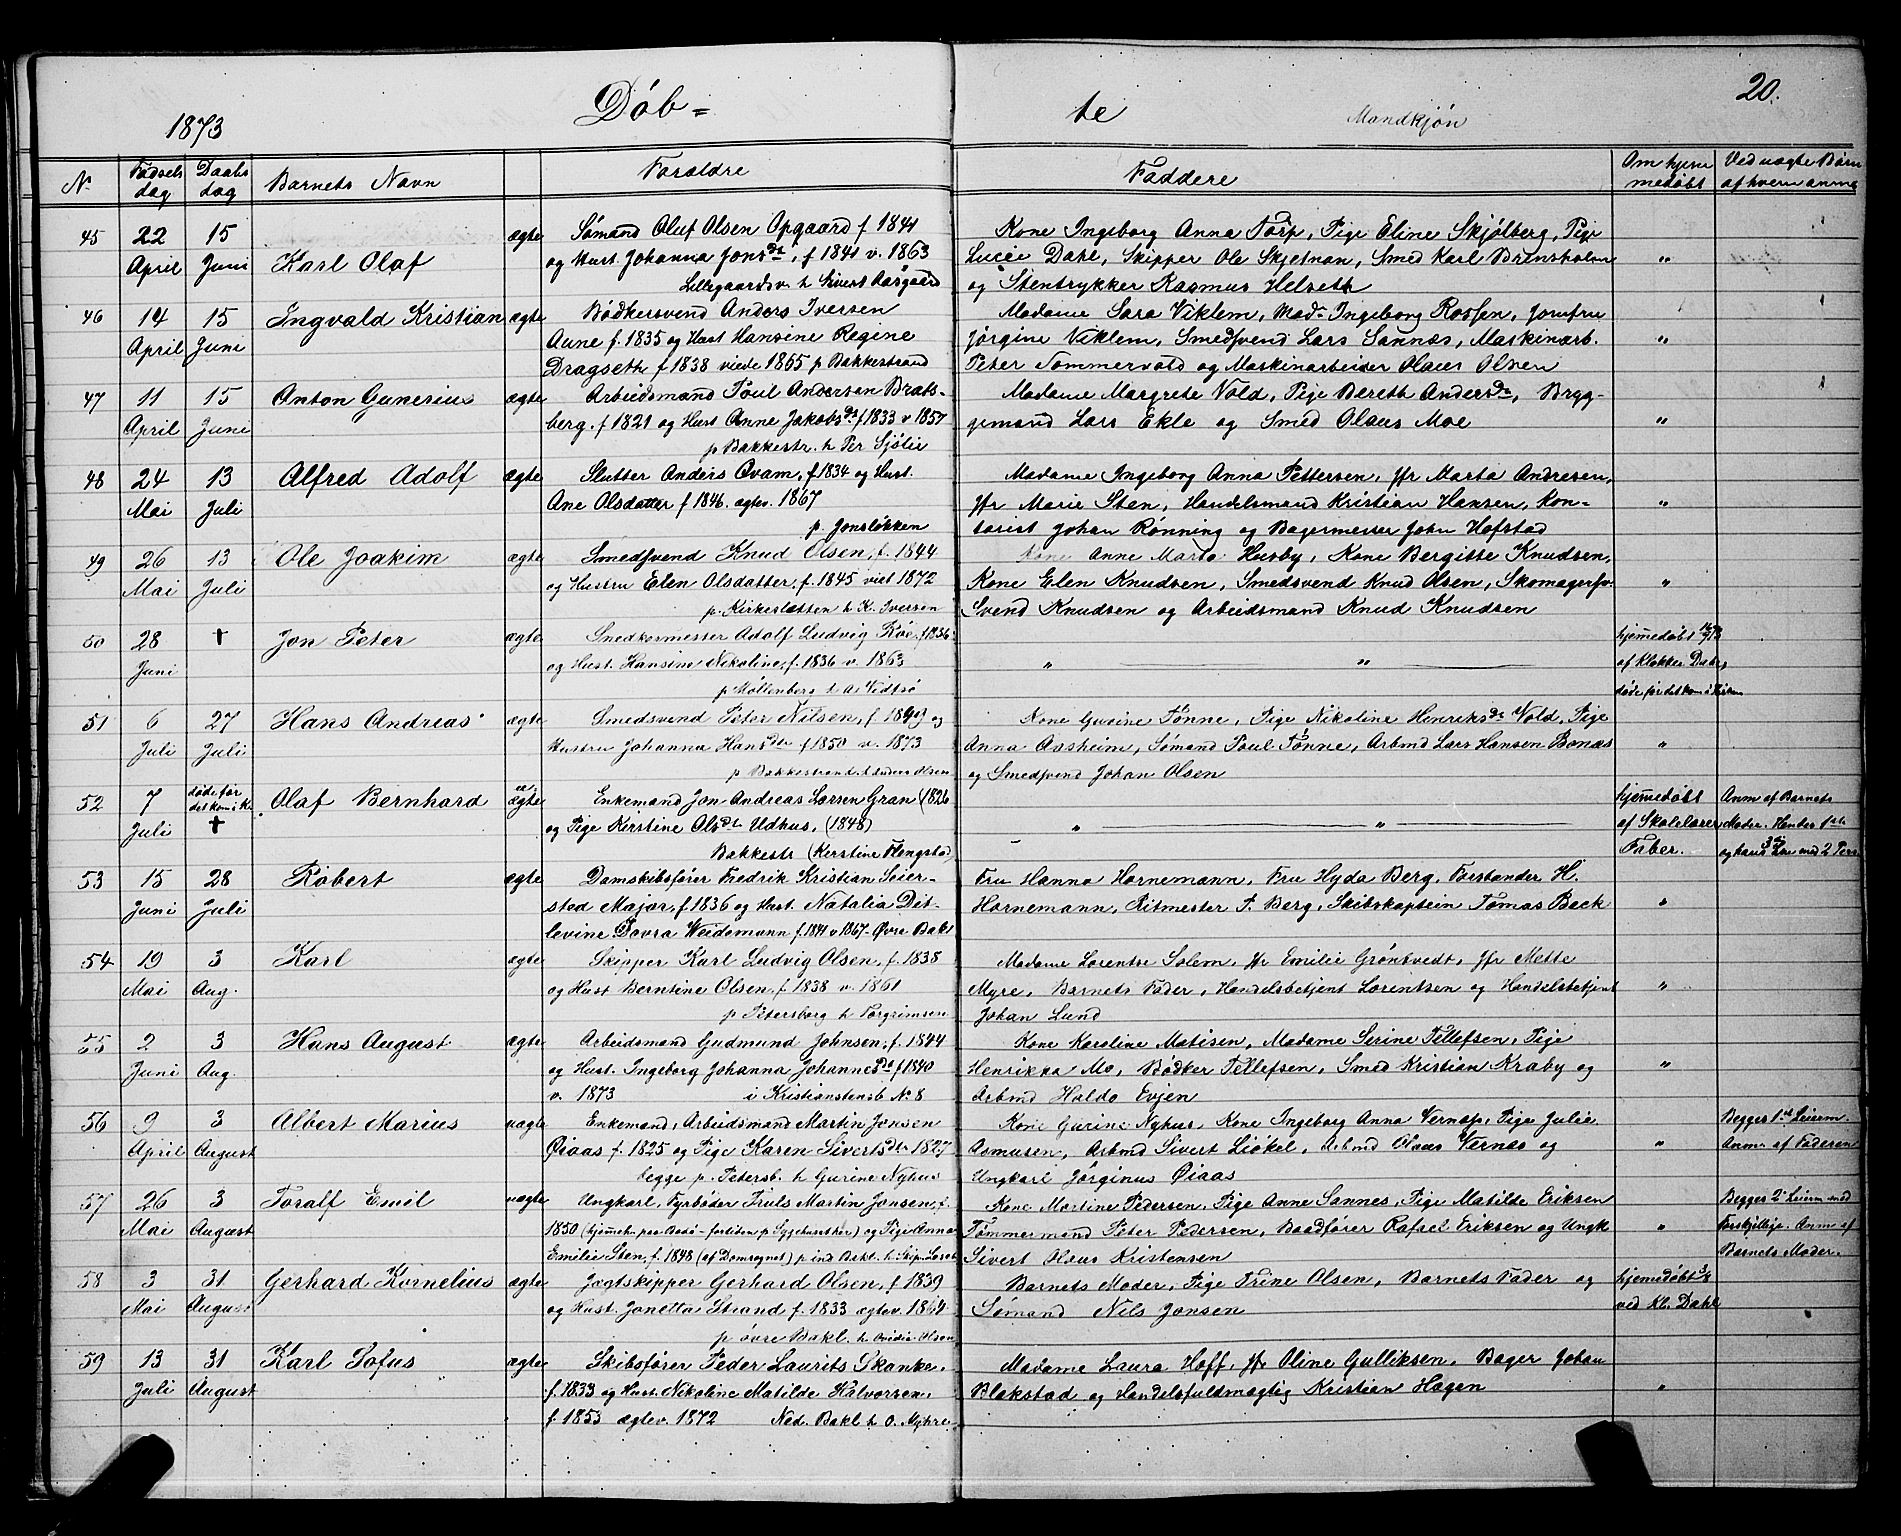 Döb= te Mandkjön 20.
1873
No Födsels dag Daabs dag Barnets Navn Forældre Faddere Om hjem medöbt Ved uægte Börn af hvem anm.
45 22 April 15 Juni Karl Olaf ægte
Sömand Oluf Olsen Opgaard f 1841
og Hust. Johanna Jonsdt, f 1841 v. 1863
Lillegaardsv. h Sivert Aasgaard
Kone Ingeborg Anna Torp, Pige Eline Skjölberg, Pige
Lucie Dahl, Skipper Ole Skjetnan, Smed Karl Brinsholm "
og Stentrykker Rasmus Helseth
46 14 April 15 Juni Ingvald Kristian ægte
Bödkersvend Anders Iversen
Aune f. 1835 og Hust Hansine Regine
Dragseth f 1838 viede 1865 p Bakkestrand
Madame Sara Viklem, Mad. Ingeborg Rossen, Jomfru
Jörgine Viklem, Smedsvend Lars Sannæs, Maskinarb. "
Peter Sommervold og Maskinarbeider Olaus Olsen
47 11 April 15 Juni Anton Gunerius ægte
Arbeidsmand Poul Andersen Brats-
berg. f 1821 og Hust Anne Jakobsdt f 1833 v 1857
p Bakkestr. h Per Sjölie
Madame Margrete Vold, Pige Bereth Andersdt, Bryg-
gemand Lars Ekle og Smed Olaus Moe "
48 24 Mai 13 Juli Alfred Adolf ægte
Slutter Anders Qvam, f 1834 og Hust.
Ane Olsdatter f 1846. ægtev. 1867
p. Jonsløkken
Madame Ingeborg Anna Pettersen, Jfr Marta Andresen,
Jfr Marie Sten, Handelsmand Kristian Hansen, Kon- "
torist Johan Rönning og Bagermester John Hofstad
49 26 Mai 13 Juli Ole Joakim ægte
Smedsvend Knud Olsen, f. 1844
og Hustru Elen Olsdatter, f. 1845 viet 1872
p. Kirkesletten h K. Iversen
Kone Anne Marta Husby, Kone Bergitte Knudsen,
Kone Elen Knudsen, Smedsvend Knud Olsen, Skomagersv. "
Svend Knudsen og Arbeidsmand Knud Knudsen
50 28 Juni † Jon Peter ægte
Snedkermester Adolf Ludvig Röe, f 1836
og Hust. Hansine Nikoline, f. 1836 v. 1863
p Möllenberg h A. Vedtsö
" "
hjemmedöbt
af Klokker Dahl,
döde før det kom i Kirken
51 6 Juli 27 Juli Hans Andreas ægte
Smedsvend Peter Nilsen, f 1849 og
Hustru Johanna Hansdtr f 1850 v. 1873
p Bakkestrand h Anders Olsen
Kone Gurine Tönne, Pige Nikoline Henriksdt Vold, Pige
Anna Aasheim, Sömand Poul Tönne, Arbmd Lars Hansen Bonæs "
og Smedsvend Johan Olsen
52 7 Juli döde før det kom i K. † Olaf Bernhard uægte
Enkemand Jon Andreas Larsen Gran (1826
og Pige Kerstine Olsdt Udhus, (1848)
Bakkestr (Kerstine Flengstad)
" "
hjemmedöbt
af Skolelærer
Faber.
Anm af Barnets
Moder. Hendes 1ste
og hans 3die Lm med 2 Pers.
53 15 Juni 28 Juli Robert ægte
Damskibsförer Fredrik Kristian Seier-
sted Major, f 1836 og Hust. Natalia Dit-
levine Tavra Weidemann f. 1841 v 1867 - Øvre Bakl
Fru Hanna Hornemann, Fru Hyda Berg, Forstander H.
Hornemann, Ritmester P. Berg, Skibskaptein Tomas Beck "
54 19 Mai 3 Aug. Karl ægte
Skipper Karl Ludvig Olsen, f. 1838
og Hust Berntine Olsen, f. 1838 v. 1861
p Petersborg h Torgrimsen
Madame Lorentse Solem, Jfr Emilie Grönkvedt, Jfr Mette
Myre, Barnets Fader, Handelsbetjent Lorentsen og Handelsbetjent "
Johan Lund
55 2 Juni 3 Aug. Hans August ægte
Arbeidsmand Gudmund Johnsen, f. 1844
og Hust. Ingeborg Johanna Johannesdt f 1840
v. 1873 i Kristianstensb No 8
Kone Karoline Matisen, Madame Serine Tellefsen, Pige
Henrikka Mo, Bödker Tellefsen, Smed Kristian Kraby og "
Arbmd Haldo Evjen
56 9 April 3 August Albert Marius uægte
Enkemand, Arbeidsmand Martin Jensen
Øiaas f. 1825 og Pige Karen Sivertsdtr 1827
begge p. Petersb. h Gurine Nyhus
Kone Gurine Nyhus, Kone Ingeborg Anna Vernes, Pige Julie
Asmusen, Arbmd Sivert Liökel, Arbmd Olaus Vernæs og "
Ungkarl Jörginus Øiaas
Begges 1ste Leierm.
Anm. af Faderen
57 26 Mai 3 August Toralf Emil uægte
Ungkarl, Fyrböder Truls Martin Jansen, f.
1850 (hjemmeh. paa Bodö - fortiden p Sygehuset her) og Pige Anna
Emilie Sten, f. 1848 (af Domsognet) p ind Bakl. h. Skip.
Kone Martine Pedersen, Pige Anne Sannes, Pige Matilde Eriksen
Tömmermand Peter Pedersen, Baadförer Rafael Eriksen og Ungk "
Sivert Olaus Kristensen
Begges 2d Leierm med
Forskjellige. Anm af
Barnets Moder.
58 3 Mai 31 August Gerhard Kornelius ægte
Jægtskipper Gerhard Olsen, f 1839
og Hust. Jonetta Strand f. 1833 ægtev. 1864
p övre Bakl. h Olsen
Barnets Moder, Pige Trine Olsen, Barnets Fader og
Sömand Nils Jonsen
hjemmedöbt
ved Kl. Dahl
59 13 Juli 31 August Karl Sofus ægte
Skibsförer Peder Laurits Skanke,
f. 1833 og Hust. Nikoline Matilde Halvorsen,
f. 1853 ægtev. 1872 Ned. Bakl h O. Myhre
Madame Laura Hoff, Jfr Oline Gulliksen, Bager Johan
Blakstad og Handelsfuldmægtig Kristian Hagen "